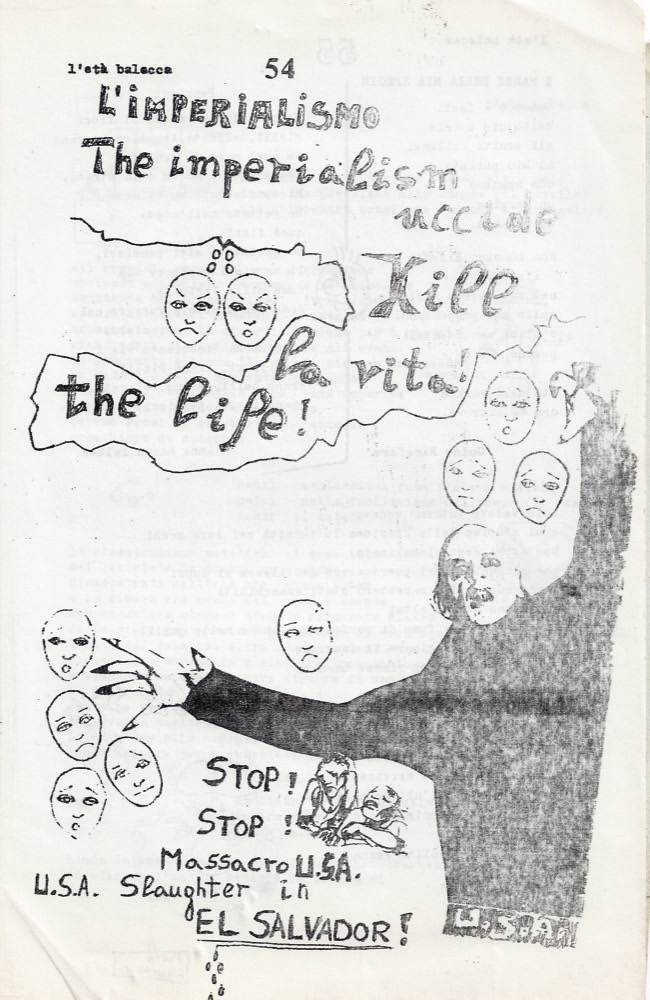 l'età balecca
54
L'IMPERIALISMO
The imperialism
uccide
Kill
la vita!
the life!
STOP!
STOP!
Massacro U.S.A.
U.S.A. Slaughter in
EL SALVADOR!
U.S.A.